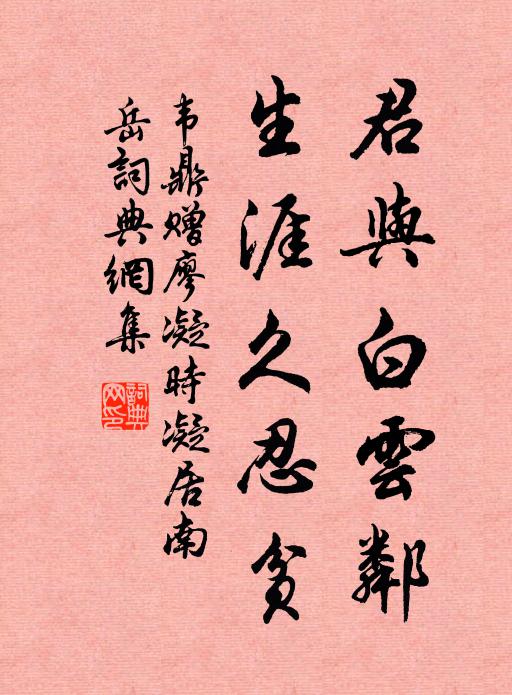 君與白雲鄰
生涯久忍貧
韦鼎赠廖凝時凝居南
岳詞典網集
詞典
网印